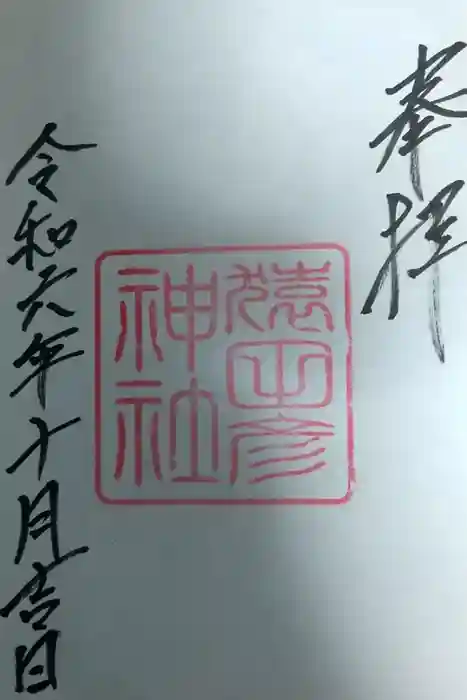 奉拝
猿田彦
神社
令和六年十月吉日